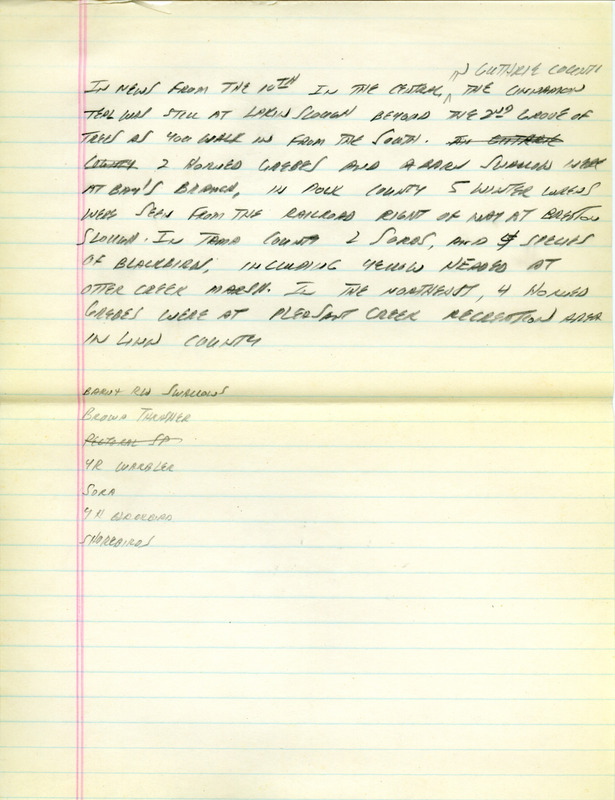 IN GUTHRIE COUNTY
IN NEWS FROM THE 10TH IN THE CENTRAL, THE CINNAMON
TEAL WAS STILL AT LAKIN SLOUGH BEYOND THE 2ND GROVE OF
TREES AS YOU WALK IN FROM THE SOUTH. IN GUTHRIE
COUNTY 2 HORNED GREBES AND A BARN SWALLOW WERE
AT BAY'S BRANCH, IN POLK COUNTY 5 WINTER WRENS
WERE SEEN FROM THE RAILROAD RIGHT OF WAY AT
SLOUGH. IN TAMA COUNTY 2 SORAS, AND SPECIES
OF BLACKBIRD, INCLUDING YELLOW HEADED AT
OTTER CREEK MARSH. IN THE NORTHEAST, 4 HORNED
GREBES WERE AT PLEASANT CREEK RECREATION AREA
IN LINN COUNTY
BARN + RW SWALLOWS
BROWN THRASHER
PECTORAL SP
YR WARBLER
SORA
YH BLACKBIRD
SHOREBIRDS